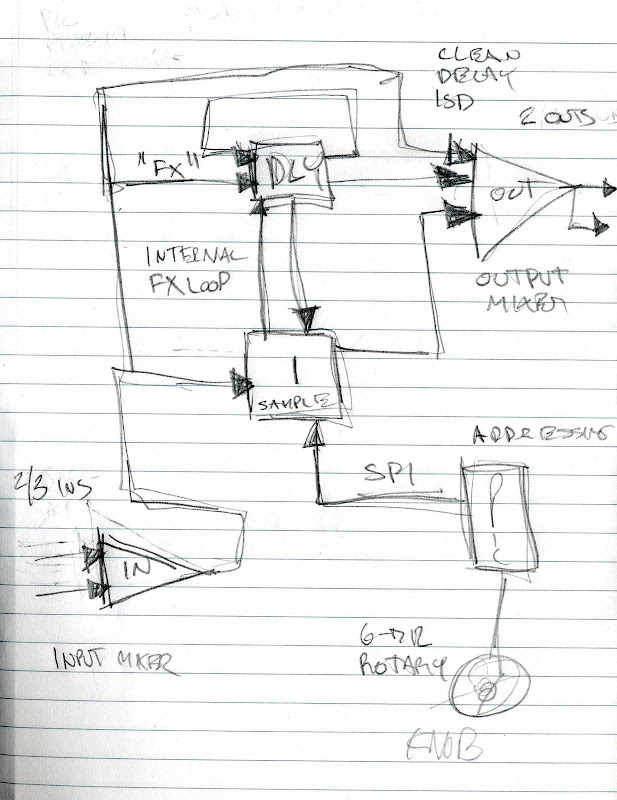 CLEAN
DELAY
ISD
2 OUTS
"FX"
DLY
OUT
INTERNAL
FX LOOP
OUTPUT
MIXER
1
SAMPLE
ADDRESSING
2/3 INS
SPI
PIC
IN
INPUT MIXER
ROTARY
KNOB